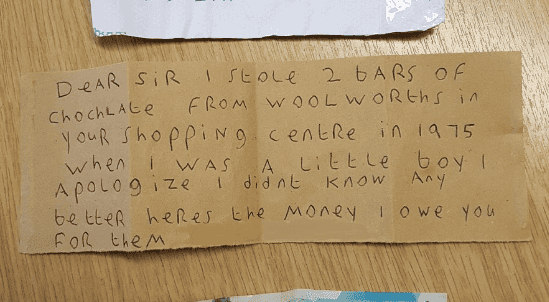 DeAR SiR I Stole 2 bARS OF
ChochLAte FROM WOOLWORthS in
YOUR Shopping centre in 1975
when I WAS A Little boy I
APologize I didnt know Any
betteR heRes the MONey I owe you
FOR theM